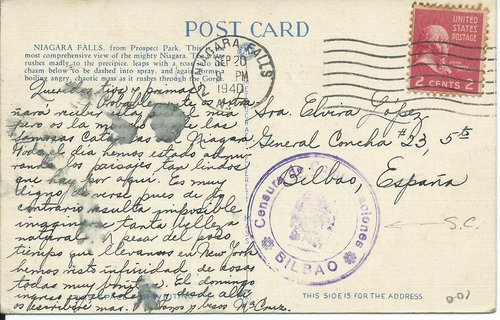 POST CARD
NIAGARA FALLS, from Prospect Park. This
most comprehensive view of the mighty Niagara. The
rushes madly to the precipice, leaps with a roar
chasm below to be dashed into spray, and again
boiling, angry, chaotic mass as it rushes through the Gorge.
NIAGARA FALLS
SEP 20
PM
1940
N.Y.
UNITED
STATES
POSTAGE
2 CENTS 2
Queridos tios y primas:
Probablemente os extra
ñará recibir esta postal mia
pero os la mando desde las
famosas Cataratas de Niagara
Todo el dia hemos estado admi
rando los paisajes tan lindos
que hay por aqui. Es muy
digno de verse pues de lo
contrario resulta imposible
imaginar tanta belleza
natural. A pesar del poco
tiempo que llevamos en New York
hemos visto infinidad de cosas
todas muy bonitas. El domingo
desde alli
os escribiré mas. Besos y besos Mª Cruz.
Sra. Elvira López
General Concha #23, 5th
Bilbao, España
S.C.
Censura de
aciones
BILBAO
THIS SIDE IS FOR THE ADDRESS